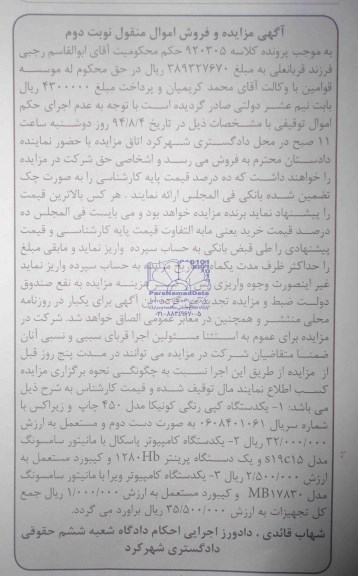 آگهی مزایده و فروش اموال منقول نوبت دوم
به موجب پرونده کلاسه ۹۲۰۳۰۵ حکم محکومیت آقای ابوالقاسم رجبی
فرزند قربانعلی به مبلغ ۳۸۹۳۲۷۶۷۰ ریال در حق محکوم له موسسه
قوامین با وکالت آقای محمد کریمیان و پرداخت مبلغ ۴۳۰۰۰۰۰ ریال
بابت نیم عشر دولتی صادر گردیده است با توجه به عدم اجرای حکم
اموال توقیفی با مشخصات ذیل در تاریخ ۹۴/۸/۴ روز دوشنبه ساعت
۱۱ صبح در محل دادگستری شهرکرد اتاق مزایده با حضور نماینده
دادستان محترم به فروش می رسد و اشخاصی حق شرکت در مزایده
را خواهند داشت که ده درصد قیمت پایه کارشناسی را به صورت چک
تضمین شده بانکی فی المجلس ارائه نمایند . هر کس بالاترین قیمت
را پیشنهاد نماید برنده مزایده خواهد بود و می بایست فی المجلس ده
درصد قیمت خرید یعنی مابه التفاوت قیمت پایه کارشناسی و قیمت
پیشنهادی را طی قبض بانکی به حساب سپرده واریز نماید و مابقی مبلغ
را حداکثر ظرف مدت یکماه به حساب سپرده واریز نماید
غیر اینصورت وجوه واریزی هزینه مزایده به نفع صندوق
دولت ضبط و مزایده تجدید این آگهی برای یکبار در روزنامه
محلی منتشر و همچنین در معابر عمومی الصاق خواهد شد. شرکت در
مزایده برای عموم به استثنا مسئولین اجرا قربای سببی و نسبی آنان
ضمنا متقاضیان شرکت در مزایده می توانند در مدت پنج روز قبل
از مزایده از طریق این اجرا نسبت به چگونگی نحوه برگزاری مزایده
کسب اطلاع نمایند مال توقیف شده و قیمت کارشناس به شرح ذیل
می باشد: ۱- یکدستگاه کپی رنگی کونیکا مدل ۴۵۰ چاپ و زیراکس با
شماره سریال ۰۶۰۸۴۰۱۰۶۱ به صورت دست دوم و مستعمل به ارزش
۳۲/۰۰۰/۰۰۰ ریال ۲- یکدستگاه کامپیوتر پاسکال با مانیتور سامسونگ
مدل s19c15 و یک دستگاه پرینتر ۱۲۸۰Hb و کیبورد مستعمل به
ارزش ۲/۵۰۰/۰۰۰ ریال ۳- یکدستگاه کامپیوتر ویرا با مانیتور سامسونگ
مدل MB۱۷۸۳۰ و کیبورد مستعمل به ارزش ۱/۰۰۰/۰۰۰ ریال جمع
کل تجهیزات به ارزش ۳۵/۵۰۰/۰۰۰ ریال براورد می گردد.
شهاب قائدی ، دادورز اجرایی احکام دادگاه شعبه ششم حقوقی
دادگستری شهرکرد
ParsNamadData
۰۲۱-۸۸۳۴۹۶۷۰-۵